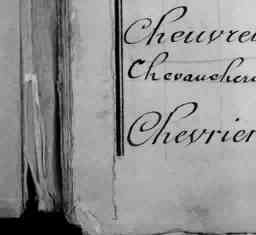 Cheuvre
Chevaucher
Chevrier